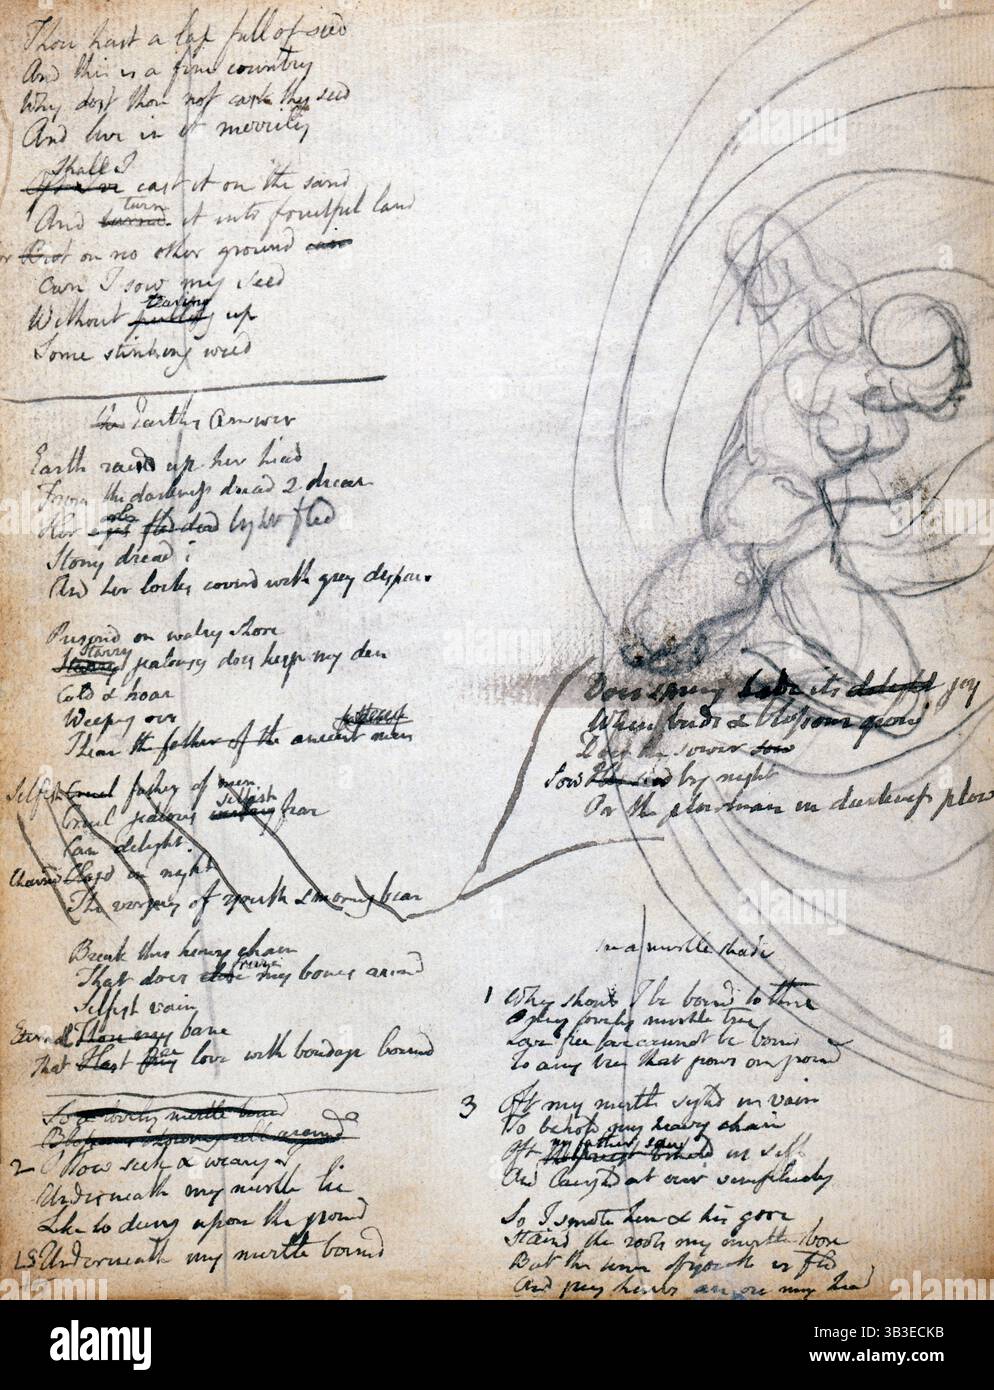 Thou hast a lap full of seed
And this is a fine country
Why dost thou not cast thy seed
And live in it merrily
Shall I
cast it on the sand
And turnd turn it into fruitful land
or But on no other ground can
Can I sow my seed
Without pulling tearing up
Some stinking weed
the Earths Answer
Earth raisd up her head
From the darkness dread & drear
Her eyes orbs fled dead light fled
Stony dread ;
And her locks coverd with grey despair
Prisond on watry shore
Starry Starry jealousy does keep my den
Cold & hoar
Weeping oer
I hear the father of the ancient men
Selfish Cruel father of men
Cruel jealous selfish fear
Can delight
Chaind Closd in night
The virgins of youth & morning bear
Does spring hide its delight joy
When buds & blossoms grow
Does the sower sow
Sow His seed by night
Or the plowman in darkness plow
Break this heavy chain
That does close freeze my bones around
Selfish vain
Eternal Thou my bane
That Hast free love with bondage bound
In a mirtle shade
1 Why should I be bound to thee
O my lovely mirtle tree
Love free love cannot be bound
To any tree that grows on ground
So a lovely mirtle bound
Blossoms showring all around
2 O how sick & weary I
Underneath my mirtle lie
Like to dung upon the ground
Underneath my mirtle bound
3 Oft my mirtle sighd in vain
To behold my heavy chain
Oft my father saw us sigh
And laughd at our simplicity
So I smote him & his gore
Staind the roots my mirtle bore
But the time of youth is fled
And grey hairs are on my head
alamy
Image ID: 3B3ECKB
www.alamy.com